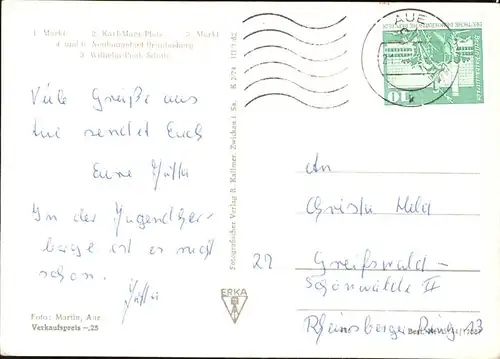 1 Markt 2 Karl-Marx-Platz 3 Markt
4 und 6 Neubaugebiet Brünlasberg
5 Wilhelm-Pieck-Schule
Viele Grüße aus
Aue sendet Euch
Eure Jutta
In der Jugendher-
berge ist es recht
schön.
Jutta
Foto: Martin, Aue
Verkaufspreis -,25
Fotografischer Verlag R. Kallmer, Zwickau i. Sa.
ERKA
AUE
k
10
DEUTSCHE DEMOKRATISCHE REPUBLIK
An
Christa
22 Greifswald-
Schönwalde II
Rheinsberger Ring 13